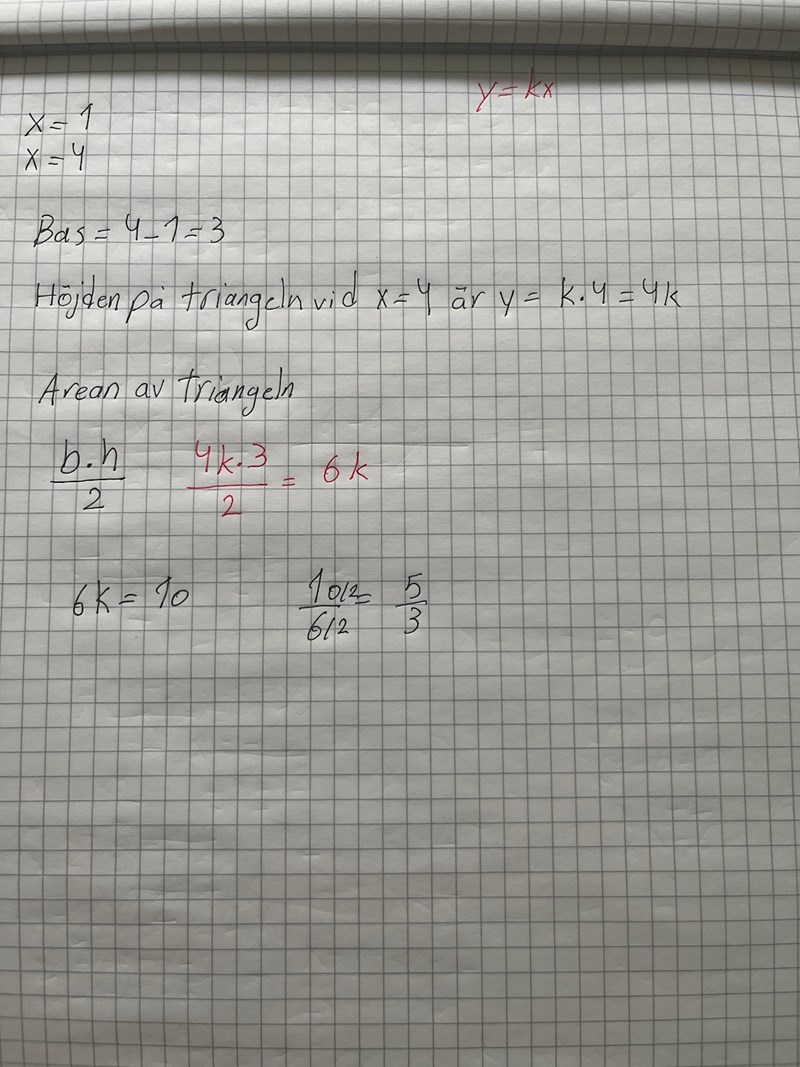 y = kx
x = 1
x = 4
Bas = 4 - 1 = 3
Höjden på triangeln vid x = 4 är y = k · 4 = 4k
Arean av triangeln
b · h / 2    4k · 3 / 2 = 6k
6k = 10    10/2 / 6/2 = 5 / 3